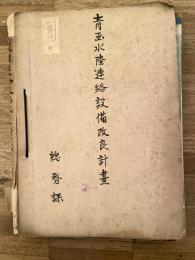 青函水陸連絡設備改良計畫
総務課